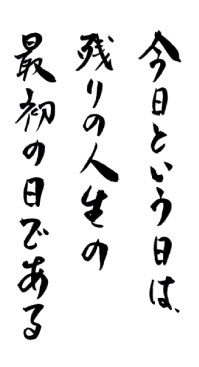 今日という日は、
残りの人生の
最初の日である